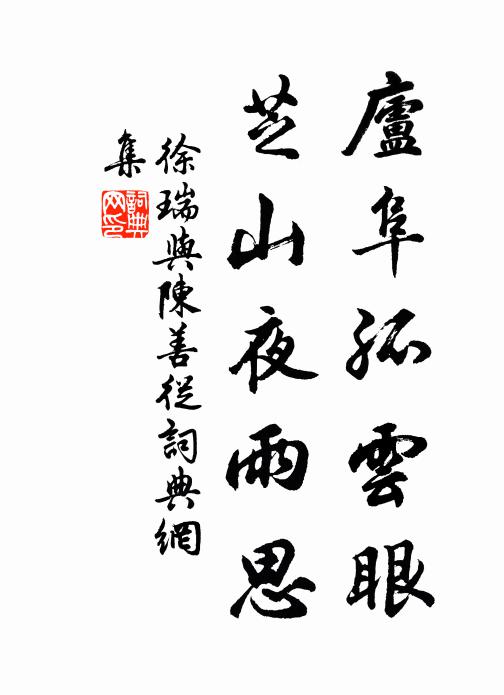 廬阜孤雲眼
芝山夜雨思
徐瑞與陳善從詞典網
集
詞典
网印